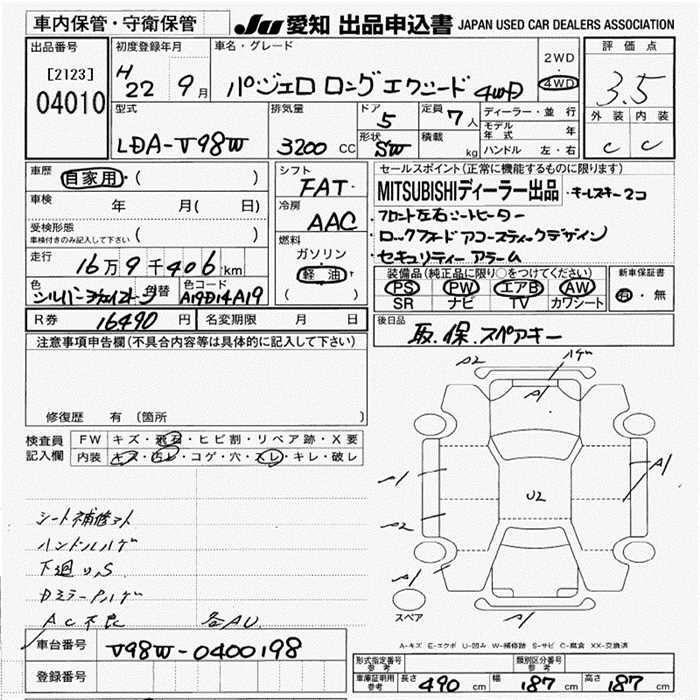 車内保管・守衛保管
JU 愛知 出品申込書 JAPAN USED CAR DEALERS ASSOCIATION
出品番号
[2123]
04010
初度登録年月
H22 9月
車名・グレード
パジェロ ロング エクシード 4WD
2WD
4WD
評価点
3.5
外装 内装
C C
型式
LDA-V98W
排気量
3200 CC
ドア
5
形状
SW
定員
7人
積載
kg
ディーラー・並行
モデル年式 年
ハンドル 左・右
車歴
自家用・( )
車検
年 月( 日)
受検形態
車検付きのみ記入して下さい ( )
走行
16万9千406km
色
シルバー 替
色コード
A19D14A19
シフト
FAT
冷房
AAC
燃料
ガソリン・
軽油
( )
セールスポイント(正常に機能するものに限ります)
MITSUBISHIディーラー出品 ・キーレスキー2コ
・フロント左右シートヒーター
・ロックフォードアコースティックデザイン
・セキュリティーアラーム
装備品(純正品に限り○をつけてください)
PS PW エアB AW
SR ナビ TV カワシート
新車保証書
有・無
R券 16490円
名変期限 月 日
後日品
取.保.スペアキー
注意事項申告欄(不具合内容等は具体的に記入して下さい)
修復歴 有 (箇所 )
検査員記入欄
FW キズ・飛石・ヒビ割・リペア跡・X要
内装 キズ・汚レ・コゲ・穴・スレ・キレ・破レ
シート補修
ハンドルハゲ
下廻り.S
AC不良 各AU
A2
ハゲ
A1
A1
A1
U2
A2
A1
スペア
A1
A-キズ E-エクボ U-凹み W-補修跡 S-サビ C-腐食 XX-交換済
車台番号
V98W-0400198
登録番号
形式指定番号 参考
類別区分番号 参考
車庫証明用 参考
長さ 490 cm 幅 187 cm 高さ 187 cm